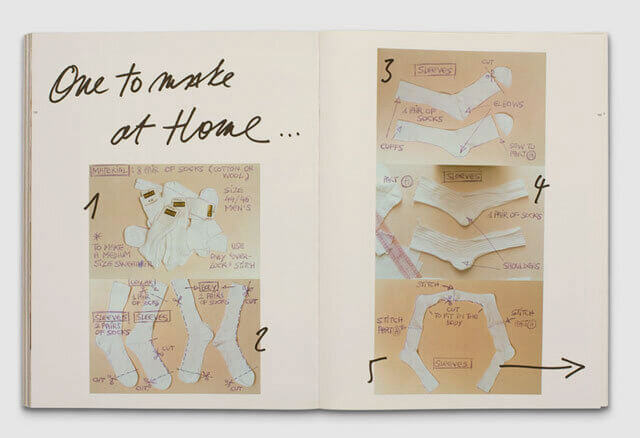 One to make
at Home...
1
MATERIAL: 8 PAIR OF SOCKS (COTTON OR
WOOL)
SIZE
44/46
MEN'S
*
TO MAKE
A MEDIUM
SIZE SWEATER
USE
ONLY "OVER-
LOCK" STITCH
2
COLLAR
1 PAIR
OF SOCKS
BODY
2 PAIRS
OF SOCKS
CUT
SLEEVES
SLEEVES
2 PAIRS
OF SOCKS
CUT
CUT
CUT
CUT
3
SLEEVES
CUT
1 PAIR OF
SOCKS
ELBOWS
CUFFS
SOW TO
PART
4
PART
SLEEVES
1 PAIR OF SOCKS
SHOULDERS
5
STITCH
CUT
TO FIT IN THE
BODY
STITCH
PART
STITCH
PART
SLEEVES